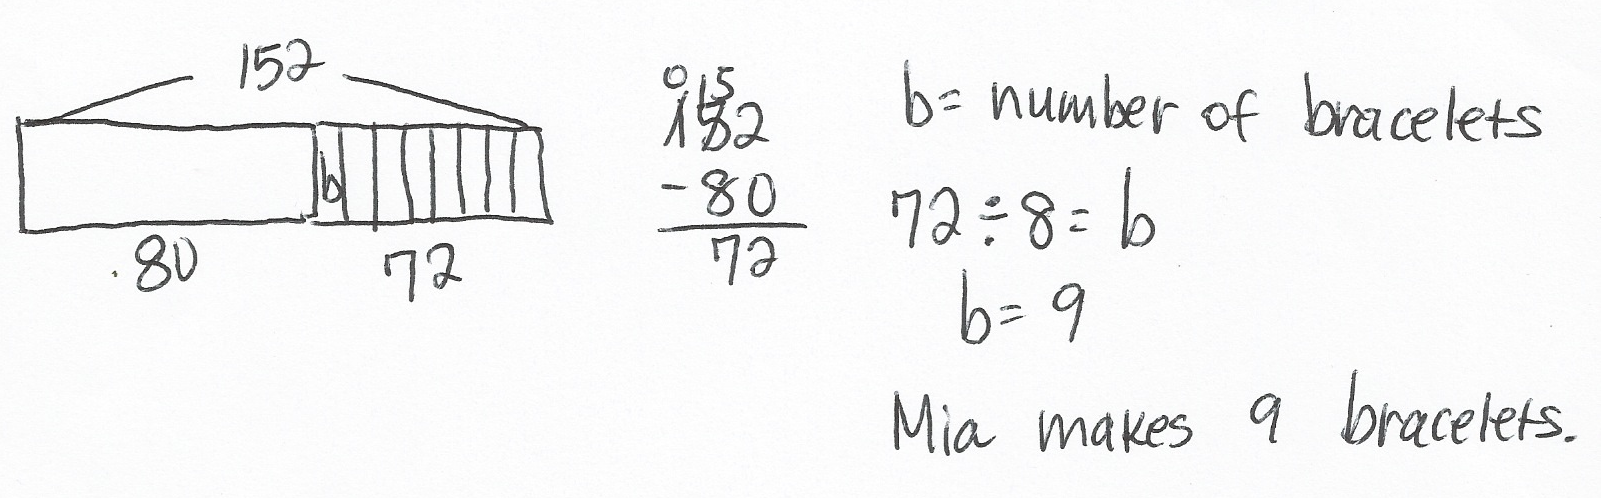 152
b
80
72
0 15
152
-80
72
b= number of bracelets
72÷8= b
b= 9
Mia makes 9 bracelets.